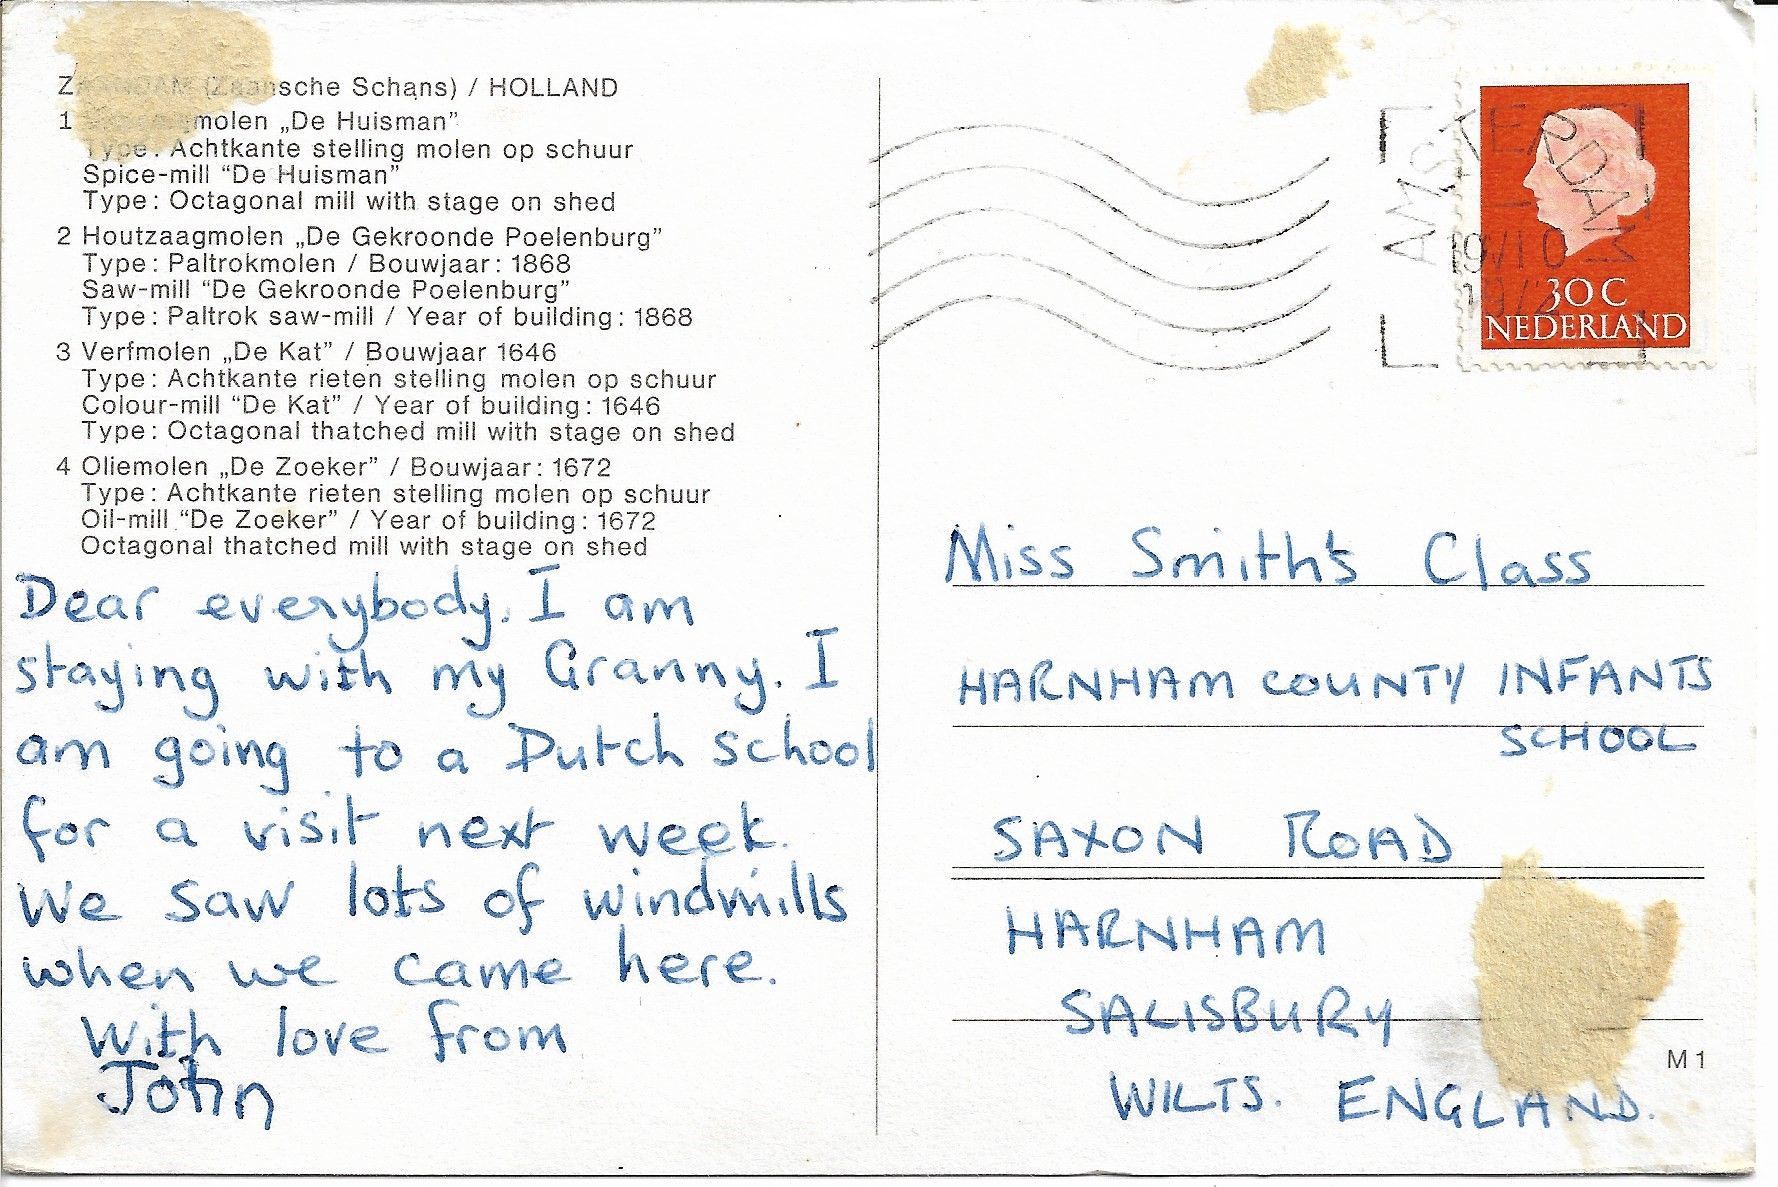 ZAANDAM (Zaansche Schans) / HOLLAND
1 molen „De Huisman”
Type: Achtkante stelling molen op schuur
Spice-mill “De Huisman”
Type: Octagonal mill with stage on shed
2 Houtzaagmolen „De Gekroonde Poelenburg”
Type: Paltrokmolen / Bouwjaar: 1868
Saw-mill “De Gekroonde Poelenburg”
Type: Paltrok saw-mill / Year of building: 1868
3 Verfmolen „De Kat” / Bouwjaar 1646
Type: Achtkante rieten stelling molen op schuur
Colour-mill “De Kat” / Year of building: 1646
Type: Octagonal thatched mill with stage on shed
4 Oliemolen „De Zoeker” / Bouwjaar: 1672
Type: Achtkante rieten stelling molen op schuur
Oil-mill “De Zoeker” / Year of building: 1672
Octagonal thatched mill with stage on shed
Dear everybody. I am
staying with my Granny. I
am going to a Dutch school
for a visit next week.
We saw lots of windmills
when we came here.
With love from
John
AMSTERDAM
30 C
NEDERLAND
Miss Smith's Class
HARNHAM COUNTY INFANTS
SCHOOL
SAXON ROAD
HARNHAM
SALISBURY
WILTS. ENGLAND.
M 1